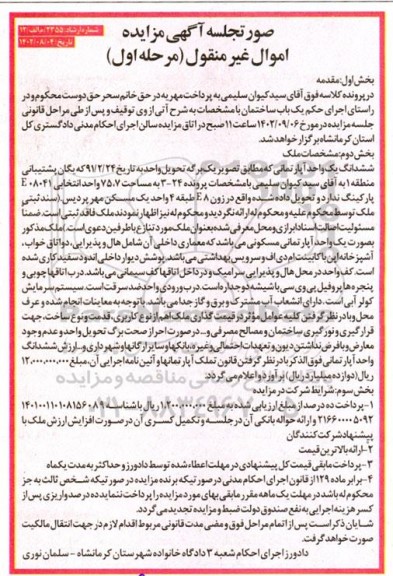 شماره ارشاد: ۲۳۵۵/م‌الف/۱۲
تاریخ: ۱۴۰۲/۰۸/۰۴
صورتجلسه آگهی مزایده
اموال غیر منقول (مرحله اول)
بخش اول: مقدمه
در پرونده کلاسه فوق آقای سید کیوان سلیمی به پرداخت مهریه در حق خانم سحر حق دوست محکوم و در
راستای اجرای حکم یک باب ساختمان با مشخصات به شرح آتی از وی توقیف و پس از طی مراحل قانونی
جلسه مزایده در مورخ ۱۴۰۲/۰۹/۰۶ ساعت ۱۱ صبح در اتاق مزایده سالن اجرای احکام مدنی دادگستری کل
استان کرمانشاه برگزار خواهد شد.
بخش دوم: مشخصات ملک
ششدانگ یک واحد آپارتمانی که مطابق تصویر یک برگه تحویل واحد به تاریخ ۹۱/۲/۲۴ که یگان پشتیبانی
منطقه ۱ به آقای سید کیوان سلیمی با مشخصات پرونده ۲۴-۳ به مساحت ۷۵.۷ واحد انتخابی E۰۸۰۴۱
پارکینگ ندارد و تحویل داده شده واقع در زون E۸ طبقه ۴ واحد یک مسکن مهر پردیس. (سند ثبتی
ملک توسط محکوم علیه و محکوم له ارائه نگردید و محکوم له نیز اظهار نمودند ملک فاقد ثبتی است. ضمنا
مسئولیت اصالت اسناد ابرازی و محل معرفی شده بعنوان ملک مورد تنازع با طرفین دعوی است. ملک مذکور
بصورت یک واحد آپارتمانی مسکونی می باشد که معماری داخلی آن شامل هال و پذیرایی، دو اتاق خواب،
آشپزخانه اپن با کابینت ام دی اف و سرویس بهداشتی می باشد. پوشش دیوار داخلی اندود سفید کاری شده
است. کف واحد در محل هال و پذیرایی سرامیک و در داخل اتاقها کف سیمانی می باشد. درب اتاقها چوبی و
پنجره ها پروفیل پی وی سی با شیشه دو جداره است. درب ورودی واحد ضد سرقت است. سیستم سرمایش
کولر آبی است. دارای انشعاب آب مشترک و برق و گاز جدا می باشد. با توجه به معاینات انجام شده و عرف
محل و با در نظر گرفتن کلیه عوامل مؤثر در قیمت گذاری ملک اهم از نوع کاربری، قدمت و نوع ساخت، جهت
قرارگیری و نورگیری ساختمان و مصالح مصرفی و... در صورت احراز صحت برگ تحویل واحد و عدم وجود
معارض و با فرض نداشتن دیون و تعهدات احتمالی و غیره به بانکها و سایر ارگانها و شهرداری و... ارزش ششدانگ
واحد آپارتمانی فوق الذکر با در نظر گرفتن قانون تملک آپارتمانها و آئین نامه اجرایی آن، مبلغ ۱۲.۰۰۰.۰۰۰.۰۰۰
ریال (دوازده میلیارد ریال) برآورد و اعلام می گردد.
بخش سوم: شرایط شرکت در مزایده
۱- پرداخت ده درصد از مبلغ ارزیابی شده به مبلغ ۱.۲۰۰.۰۰۰.۰۰۰ ریال با شناسه
و ارائه حواله بانکی آن در جلسه و تکمیل کسری آن در صورت افزایش ارزش ملک با
پیشنهاد شرکت کنندگان
۲- ارائه بالاترین قیمت
۳- پرداخت مابقی قیمت کل پیشنهادی در مهلت اعطاء شده توسط دادورز و حداکثر به مدت یکماه
۴- برابر ماده ۱۲۹ از قانون اجرای احکام مدنی در صورتیکه برنده مزایده در صورتیکه شخص ثالث به جز
محکوم له باشد در مهلت یک ماهه مقرر مابقی بهای مورد مزایده را پرداخت ننماید ده درصد واریزی پس از
کسر هزینه اجرایی به نفع صندوق دولت ضبط و مزایده تجدید می گردد.
شایان ذکر است پس از اتمام مراحل فوق و مضی مدت قانونی مربوط اقدام لازم در جهت انتقال مالکیت
صورت خواهد گرفت.
دادورز اجرای احکام شعبه ۳ دادگاه خانواده شهرستان کرمانشاه - سلمان نوری